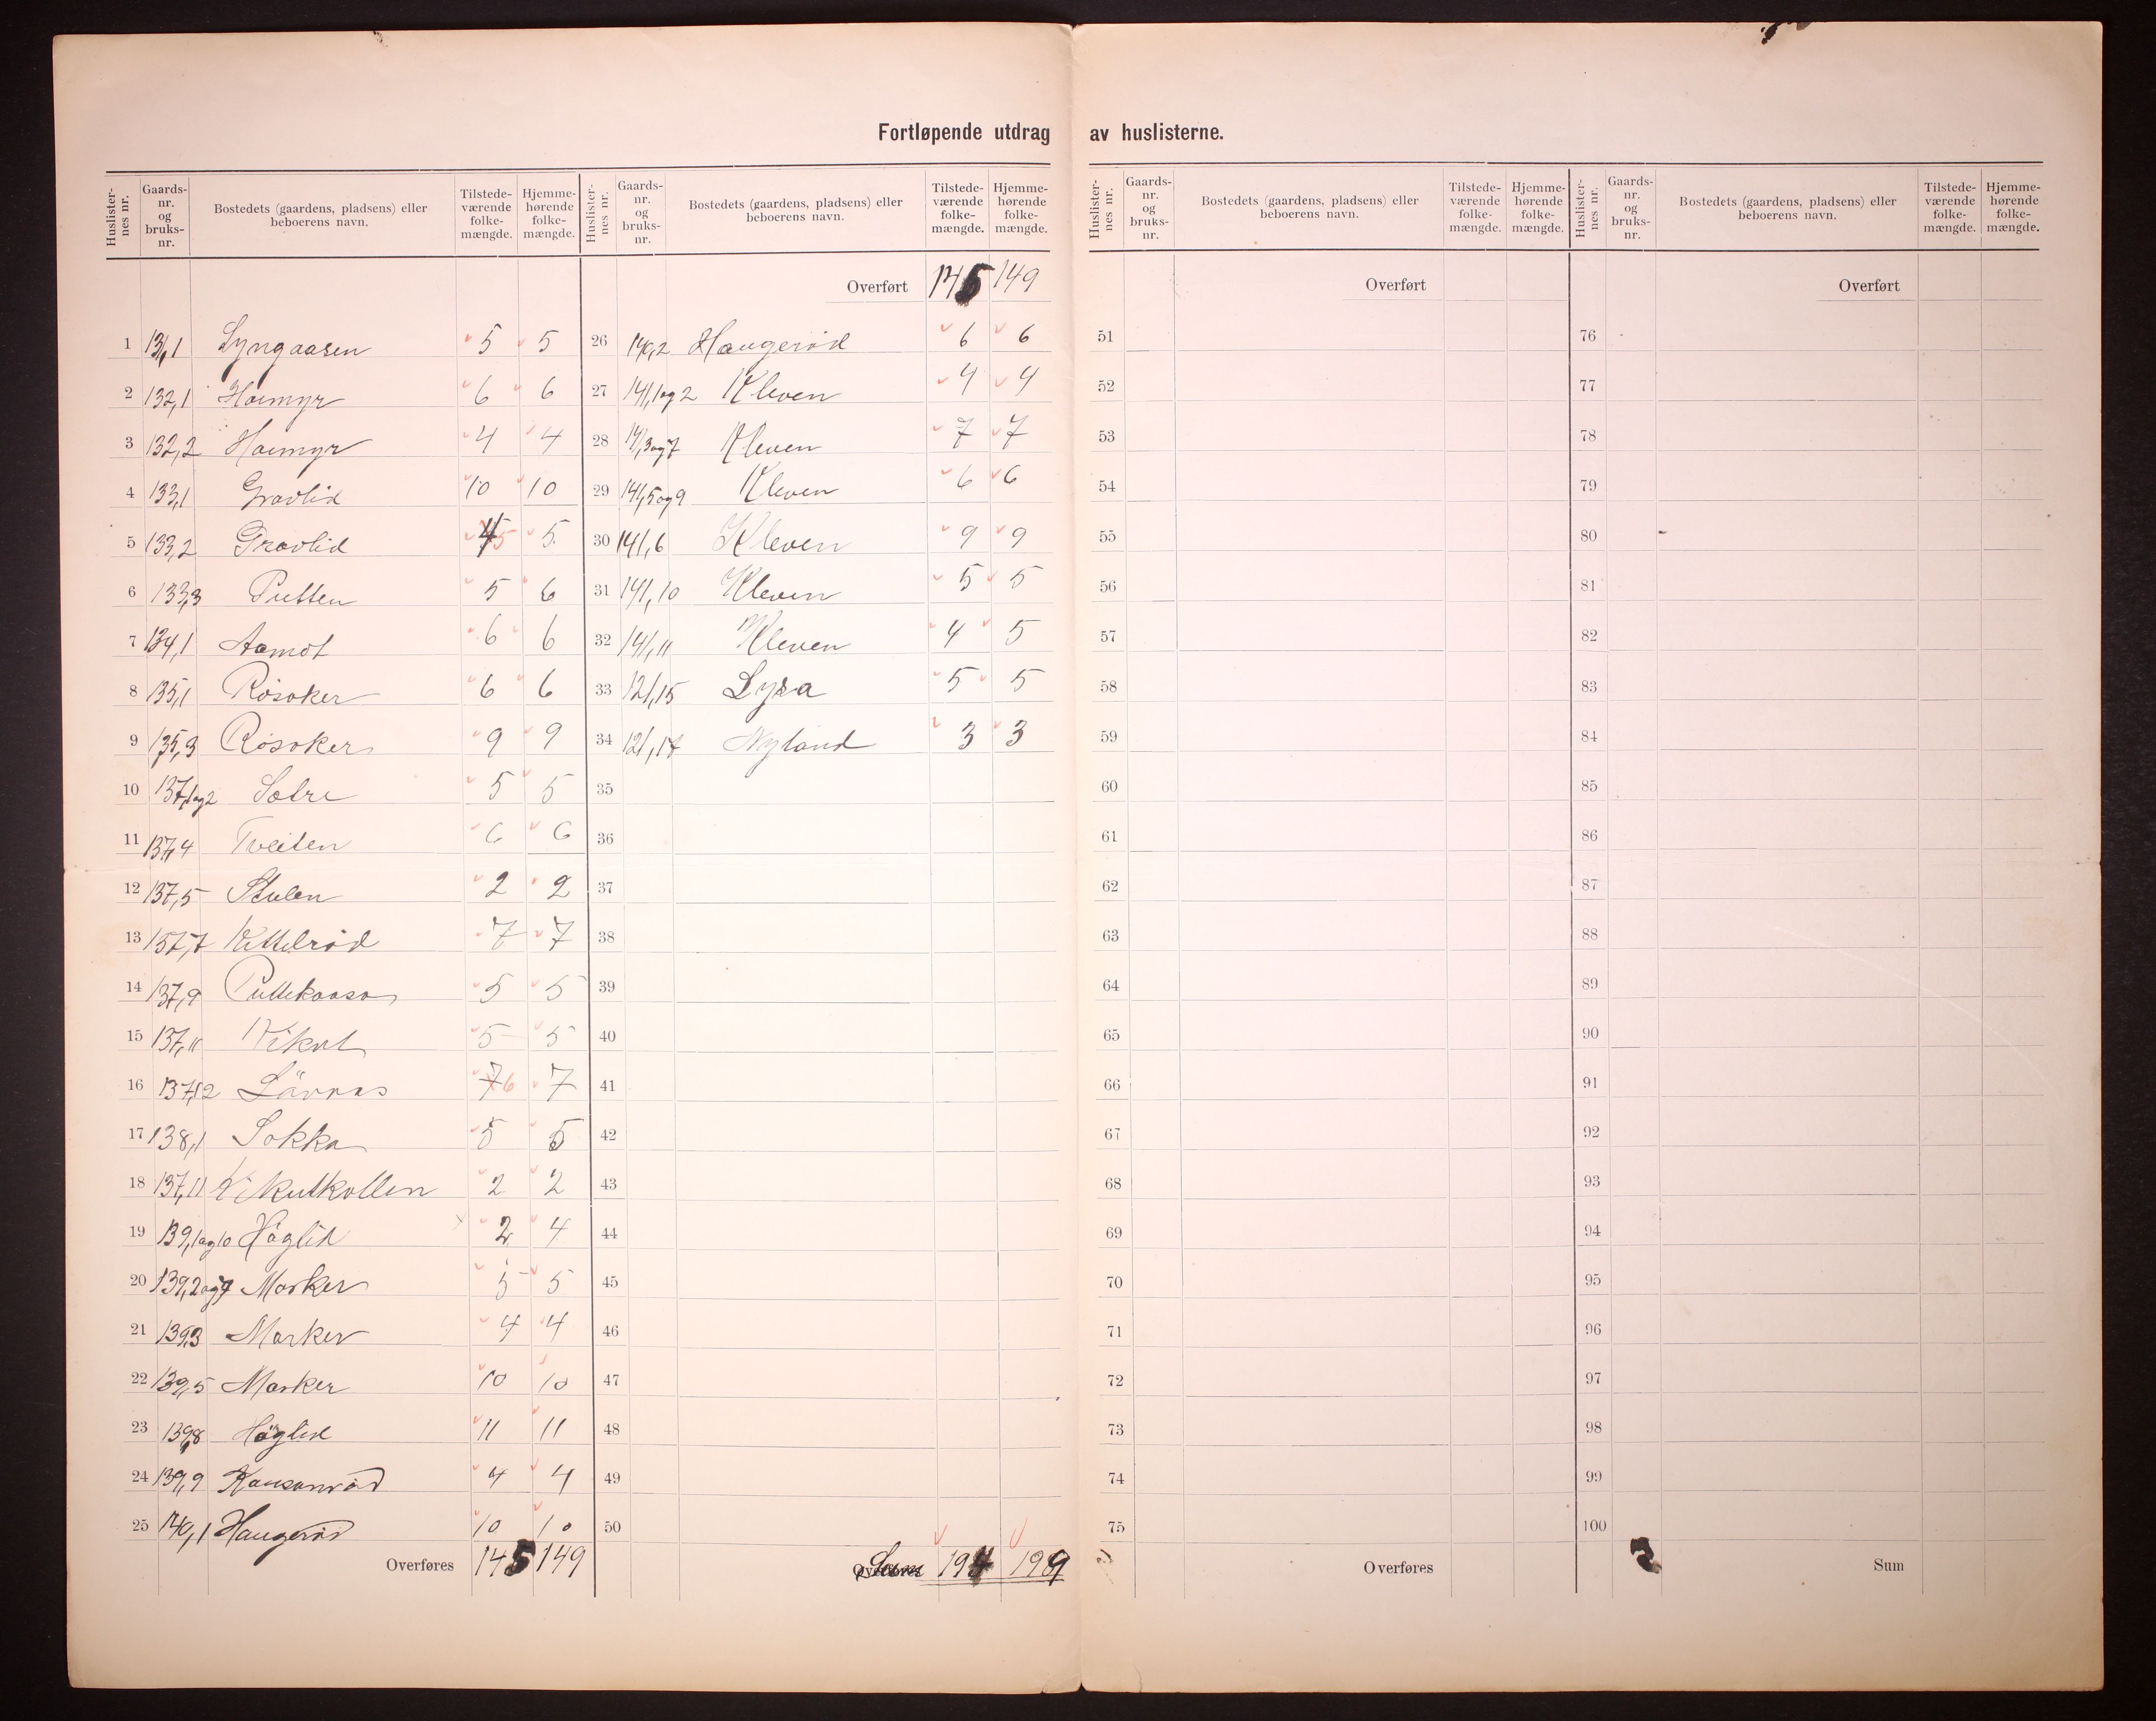 Fortløpende utdrag av huslisterne.
Huslisternes nr. Gaards-nr. og bruks-nr. Bostedets (gaardens, pladsens) eller beboerens navn. Tilstede-værende folke-mængde. Hjemme-hørende folke-mængde.
1 131,1 Lyngaasen 5 5
2 132,1 Hoimyr 6 6
3 132,2 Hoimyr 4 4
4 133,1 Gravlid 10 10
5 133,2 Gravlid 4 5 5
6 133,3 Putten 5 6
7 134,1 Aamot 6 6
8 135,1 Rosoker 6 6
9 135,3 Rosoker 9 9
10 137,1og2 Solre 5 5
11 137,4 Tveiten 6 6
12 137,5 Stulen 2 2
13 137,7 Kittelrød 7 7
14 137,9 Puttekaasa 5 5
15 137,11 Vikut 5 5
16 137,12 7 6 7
17 138,1 Sokka 5 5
18 137,11 Vikutkollen 2 2
19 139,1og10 Høglid 2 4
20 139,2og7 Marker 5 5
21 139,3 Marker 4 4
22 139,5 Marker 10 10
23 139,8 Høglid 11 11
24 139,9 Hansanrød 4 4
25 140,1 Haugerød 10 10
Overføres 145 149
Huslisternes nr. Gaards-nr. og bruks-nr. Bostedets (gaardens, pladsens) eller beboerens navn. Tilstede-værende folke-mængde. Hjemme-hørende folke-mængde.
Overført 145 149
26 140,2 Haugerød 6 6
27 141,1og2 Kleven 4 4
28 141,3og7 Kleven 7 7
29 141,5og9 Kleven 6 6
30 141,6 Kleven 9 9
31 141,10 Kleven 5 5
32 141,11 Kleven 4 5
33 121,15 Lysa 5 5
34 121,17 Nyland 3 3
35
36
37
38
39
40
41
42
43
44
45
46
47
48
49
50
Sum 194 199
Huslisternes nr. Gaards-nr. og bruks-nr. Bostedets (gaardens, pladsens) eller beboerens navn. Tilstede-værende folke-mængde. Hjemme-hørende folke-mængde.
Overført
51
52
53
54
55
56
57
58
59
60
61
62
63
64
65
66
67
68
69
70
71
72
73
74
75
Overføres
Huslisternes nr. Gaards-nr. og bruks-nr. Bostedets (gaardens, pladsens) eller beboerens navn. Tilstede-værende folke-mængde. Hjemme-hørende folke-mængde.
Overført
76
77
78
79
80
81
82
83
84
85
86
87
88
89
90
91
92
93
94
95
96
97
98
99
100
Sum